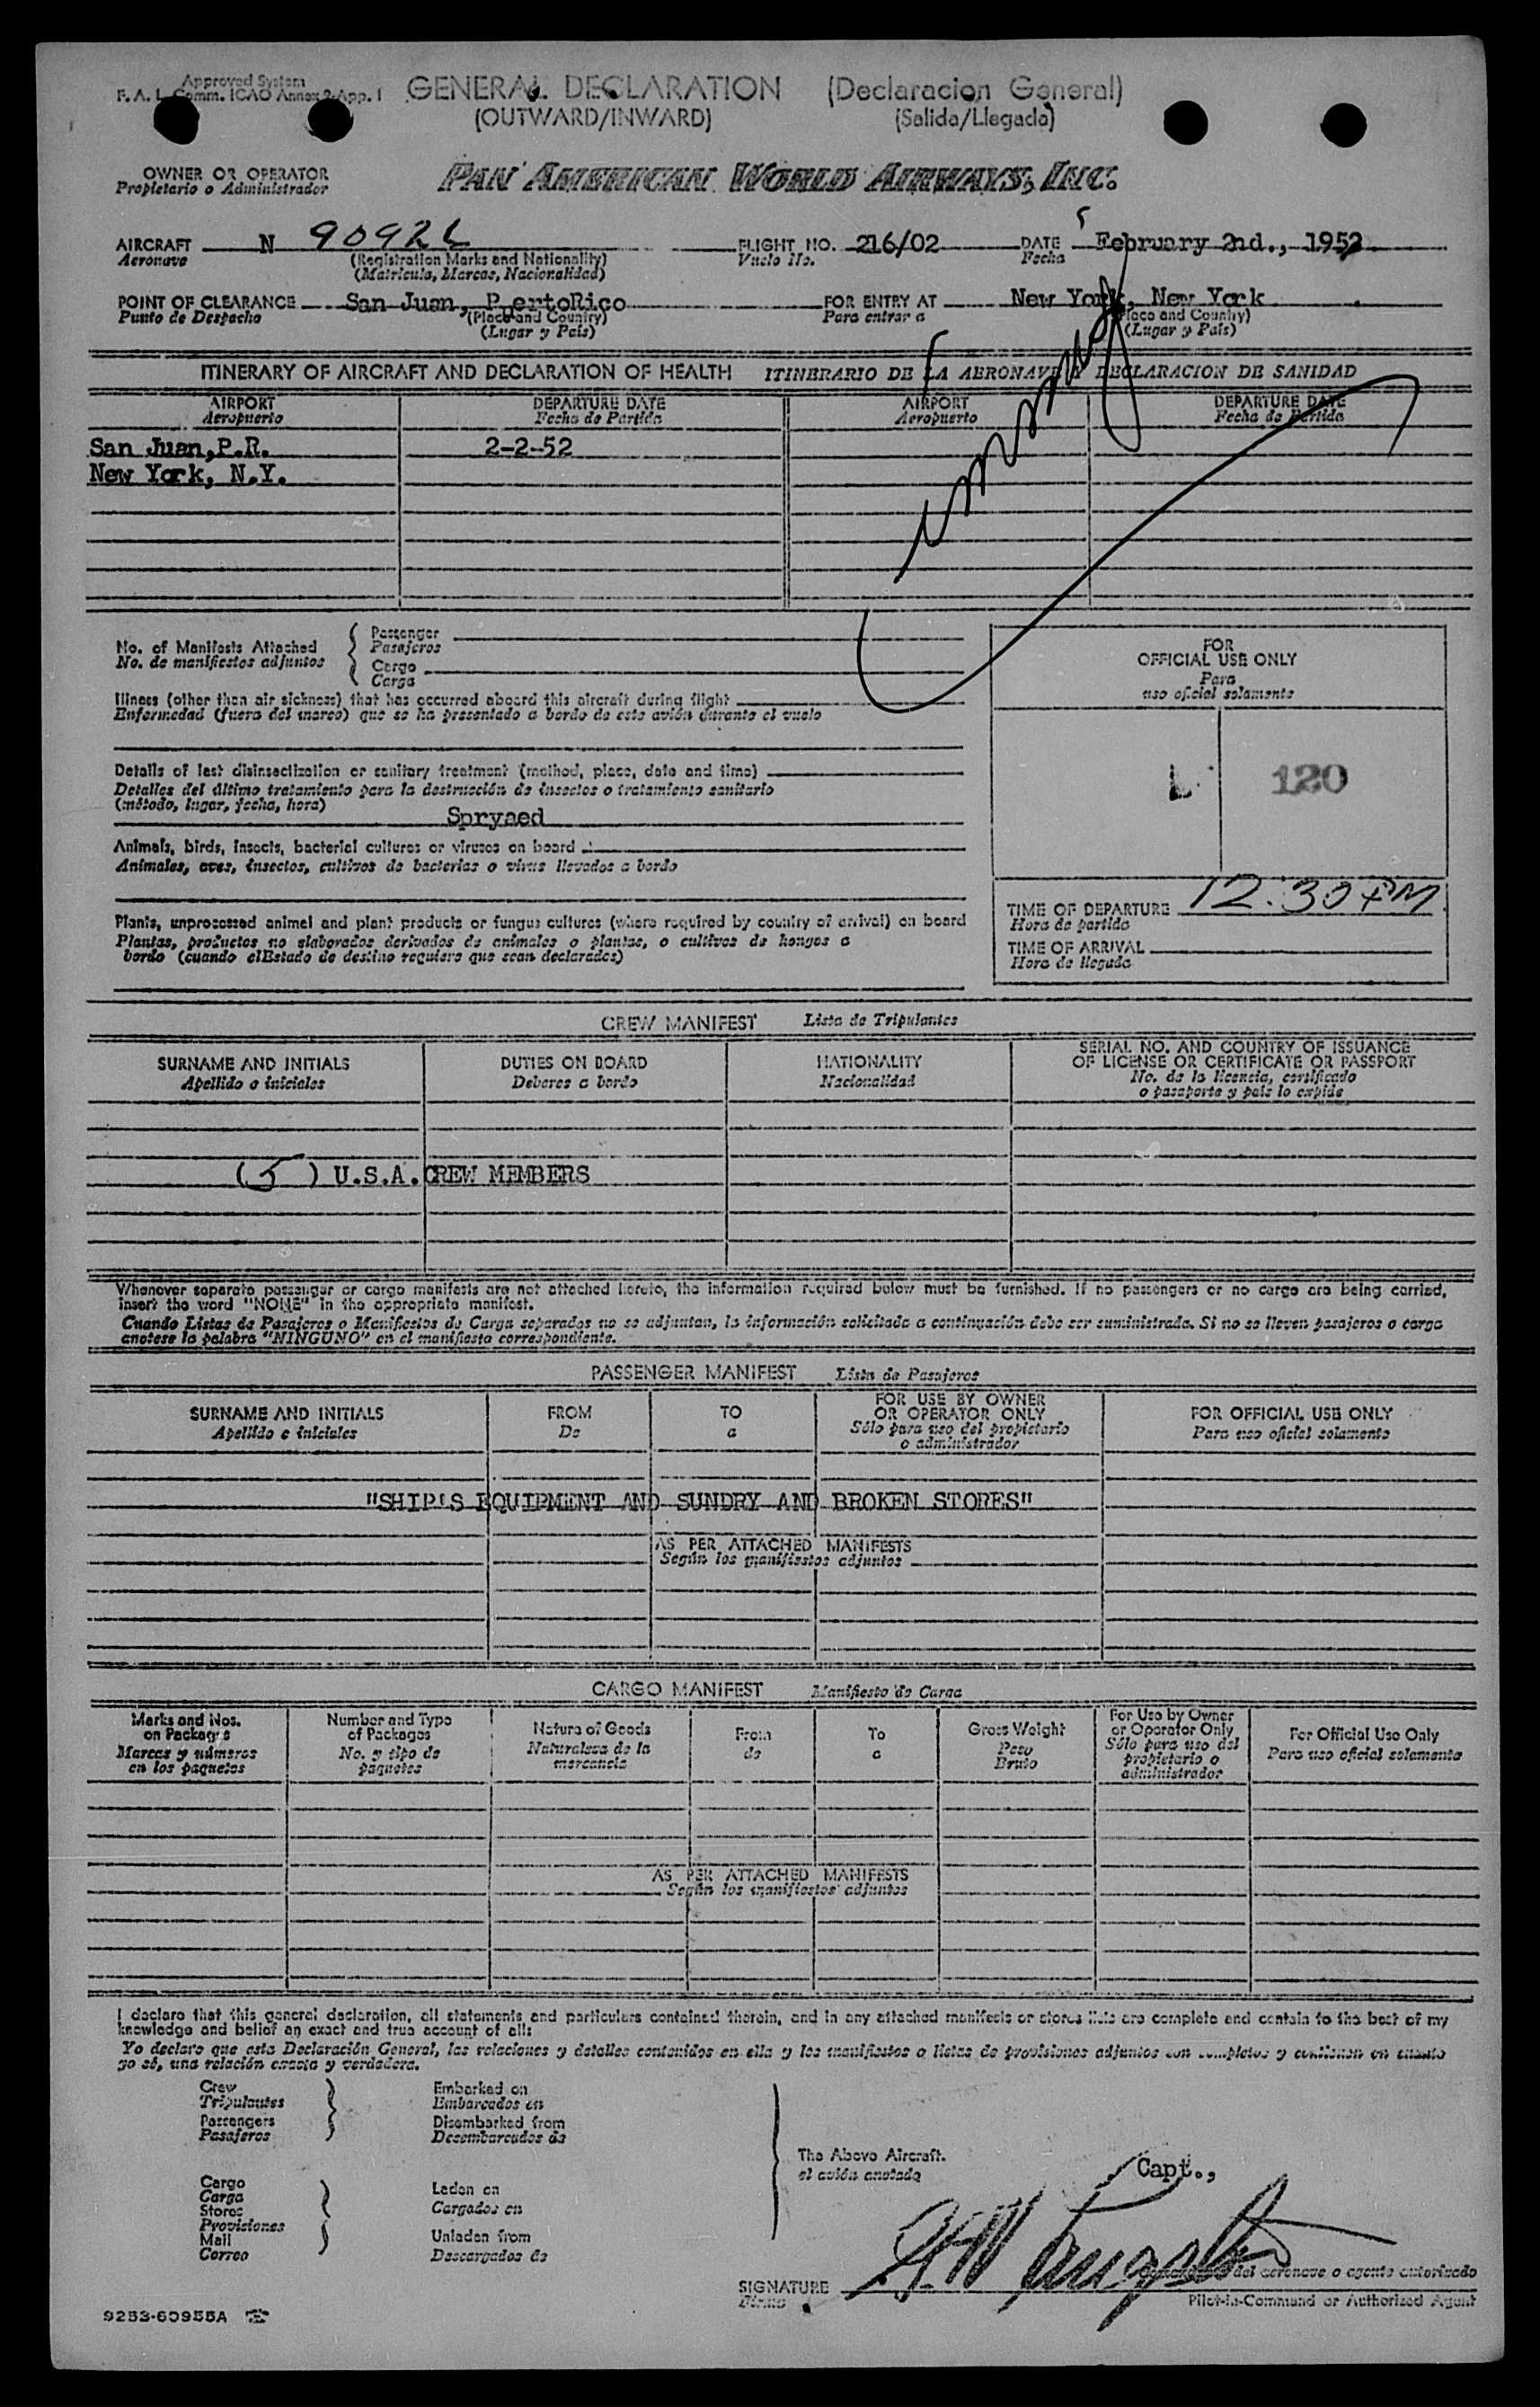 Approved System
F. A. L. Comm. ICAO Annex 9-App. 1
GENERAL DECLARATION (Declaracion General)
(OUTWARD/INWARD) (Salida/Llegada)
OWNER OR OPERATOR
Propietario o Administrador
PAN AMERICAN WORLD AIRWAYS, INC.
AIRCRAFT N FLIGHT NO. 216/02 DATE February 2nd., 1952
Aeronave (Registration Marks and Nationality) Vuelo No. Fecha
(Matricula, Marcas, Nacionalidad)
POINT OF CLEARANCE San Juan, PuertoRico FOR ENTRY AT New York, New York
Punto de Despacho (Place and Country) Para entrar a (Place and Country)
(Lugar y País) (Lugar y País)
ITINERARY OF AIRCRAFT AND DECLARATION OF HEALTH ITINERARIO DE LA AERONAVE Y DECLARACION DE SANIDAD
AIRPORT DEPARTURE DATE AIRPORT DEPARTURE DATE
Aeropuerto Fecha de Partida Aeropuerto Fecha de Partida
San Juan,P.R. 2-2-52
New York, N.Y.
No. of Manifests Attached
No. de manifiestos adjuntos
Passenger
Pasajeros
Cargo
Carga
Illness (other than air sickness) that has occurred aboard this aircraft during flight
Enfermedad (fuera del mareo) que se ha presentado a bordo de este avión durante el vuelo
Details of last disinsectization or sanitary treatment (method, place, date and time)
Detalles del último tratamiento para la destrucción de insectos o tratamiento sanitario
(método, lugar, fecha, hora)
Spryaed
Animals, birds, insects, bacterial cultures or viruses on board
Animales, aves, insectos, cultivos de bacterias o virus llevados a bordo
Plants, unprocessed animal and plant products or fungus cultures (where required by country of arrival) on board
Plantas, productos no elaborados derivados de animales o plantas, o cultivos de hongos a
bordo (cuando elEstado de destino requiere que sean declarados)
FOR
OFFICIAL USE ONLY
Para
uso oficial solamente
L 120
TIME OF DEPARTURE 12:30 PM
Hora de partida
TIME OF ARRIVAL
Hora de llegada
CREW MANIFEST Lista de Tripulantes
SURNAME AND INITIALS DUTIES ON BOARD NATIONALITY SERIAL NO. AND COUNTRY OF ISSUANCE
OF LICENSE OR CERTIFICATE OR PASSPORT
Apellido o iniciales Deberes a bordo Nacionalidad No. de la licencia, certificado
o pasaporte y país lo expide
(5) U.S.A.CREW MEMBERS
Whenever separate passenger or cargo manifests are not attached hereto, the information required below must be furnished. If no passengers or no cargo are being carried,
insert the word "NONE" in the appropriate manifest.
Cuando Listas de Pasajeros o Manifiestos de Carga separados no se adjuntan, la información solicitada a continuación debe ser suministrada. Si no se lleven pasajeros o carga
anotese la palabra "NINGUNO" en el manifiesto correspondiente.
PASSENGER MANIFEST Lista de Pasajeros
SURNAME AND INITIALS FROM TO FOR USE BY OWNER
OR OPERATOR ONLY FOR OFFICIAL USE ONLY
Apellido e iniciales De a Sólo para uso del propietario
o administrador Para uso oficial solamente
"SHIP'S EQUIPMENT AND SUNDRY AND BROKEN STORES"
AS PER ATTACHED MANIFESTS
Según los manifiestos adjuntos
CARGO MANIFEST Manifiesto de Carga
Marks and Nos.
on Packages
Marcas y números
en los paquetes
Number and Type
of Packages
No. y tipo de
paquetes
Nature of Goods
Naturaleza de la
mercancia
From
de
To
a
Gross Weight
Peso
Bruto
For Use by Owner
or Operator Only
Sólo para uso del
propietario o
administrador
For Official Use Only
Para uso oficial solamente
AS PER ATTACHED MANIFESTS
Según los manifiestos adjuntos
I declare that this general declaration, all statements and particulars contained therein, and in any attached manifests or stores lists are complete and contain to the best of my
knowledge and belief an exact and true account of all:
Yo declaro que esta Declaración General, las relaciones y detalles contenidos en ella y los manifiestos o listas de provisiones adjuntos son completos y contienen en cuanto
yo sé, una relación exacta y verdadera.
Crew
Tripulantes
Passengers
Pasajeros
Embarked on
Embarcados en
Disembarked from
Desembarcados de
Cargo
Carga
Stores
Provisiones
Mail
Correo
Laden on
Cargados en
Unladen from
Descargados de
The Above Aircraft.
el avión anotado
Capt.,
SIGNATURE
Firma
del aeronave o agente autorizado
Pilot-in-Command or Authorized Agent
9253-60955A